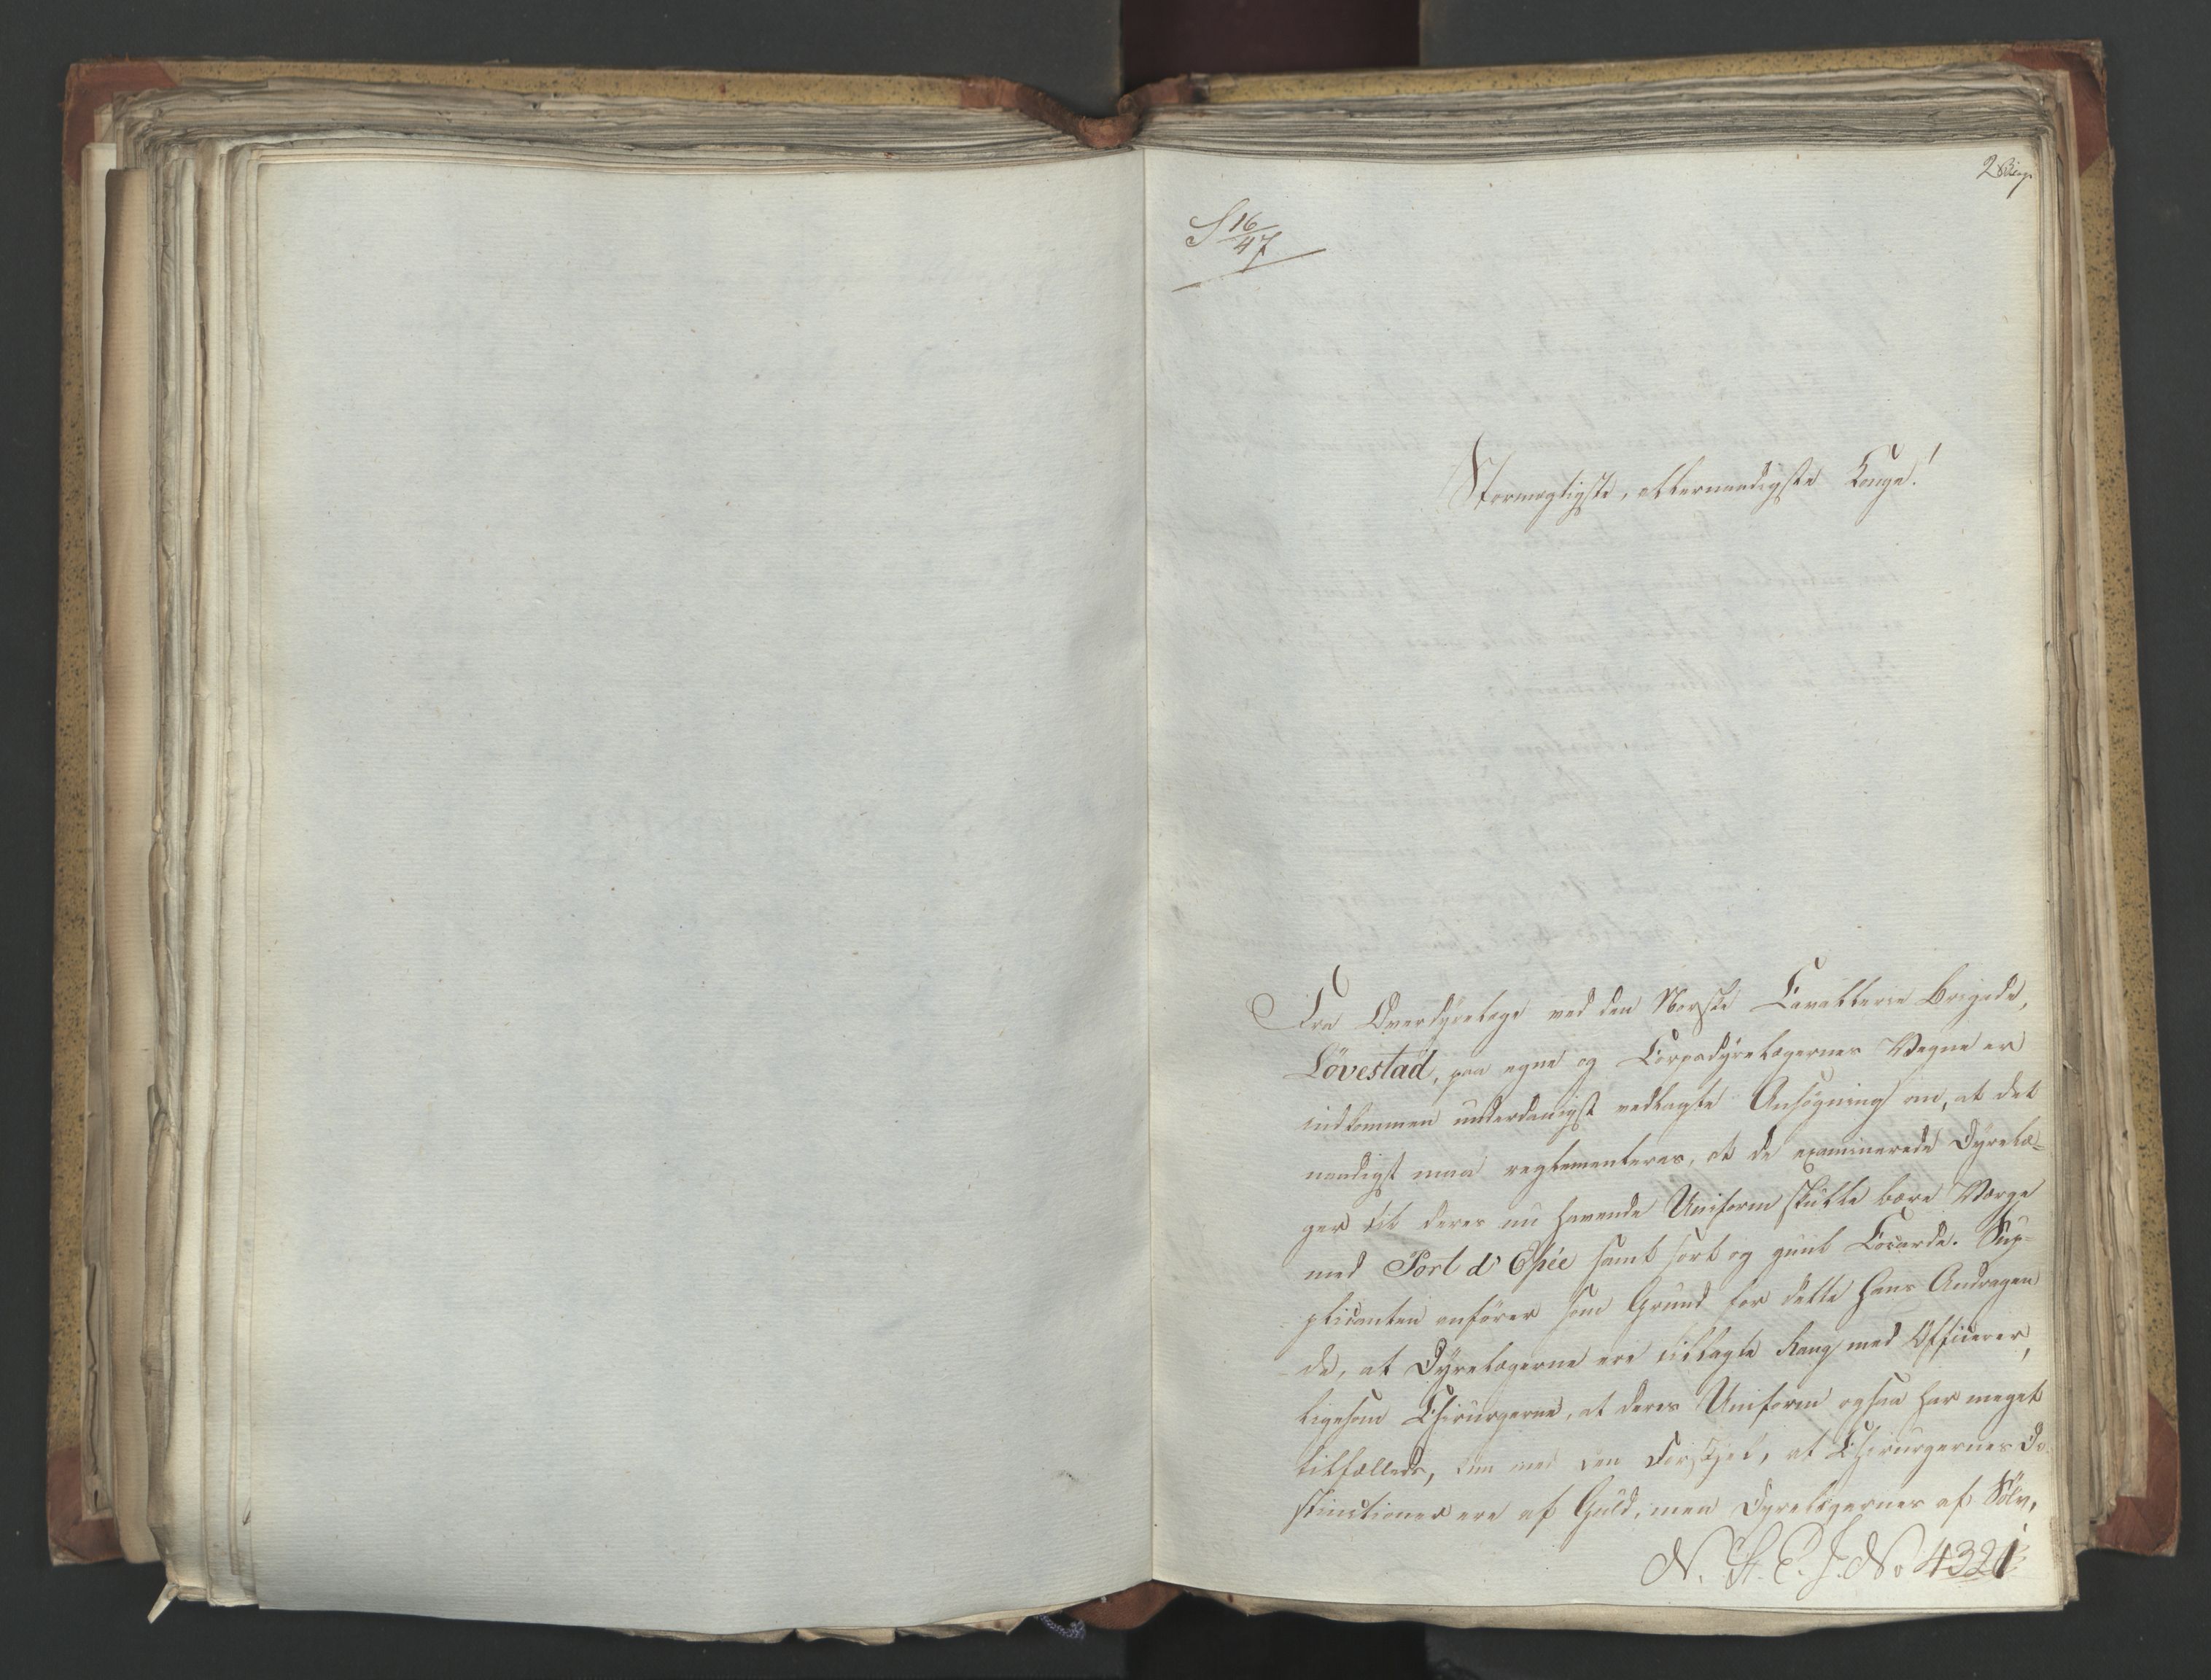 2 Bilag
S 16/47
Stormægtigste, allernaadigste Konge!
Fra Overdyrlæge ved den Norske Cavallerie Brigade,
Lövestad, paa egne og Corpsdyrelægernes Vegne er
indkommen underdanigst vedlagte Ansögning om, at det
naadigst maa reglementeres, at de examinerede Dyrelæ-
ger til deres nu havende Uniform skulle bære Værge
med Port d'Epée samt sort og guul Cocarde. Sup-
plicanten anförer som Grund for dette hans Andragen
de, at Dyrelægerne ere tillagte Rang med Officerer,
ligesom Chirurgerne, at deres Uniform ogsaa har meget
tilfælleds, kun med den Forskjel, at Chirurgernes Di-
stinctioner ere af Guld, men Dyrelægernes af Sölv,
N. St. E. J. No 4321